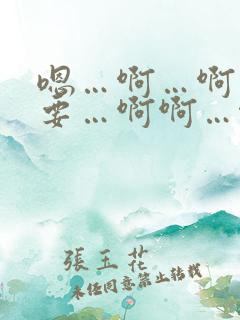 嗯…啊…啊
要…啊啊…
張玉花
未经同意禁止转载